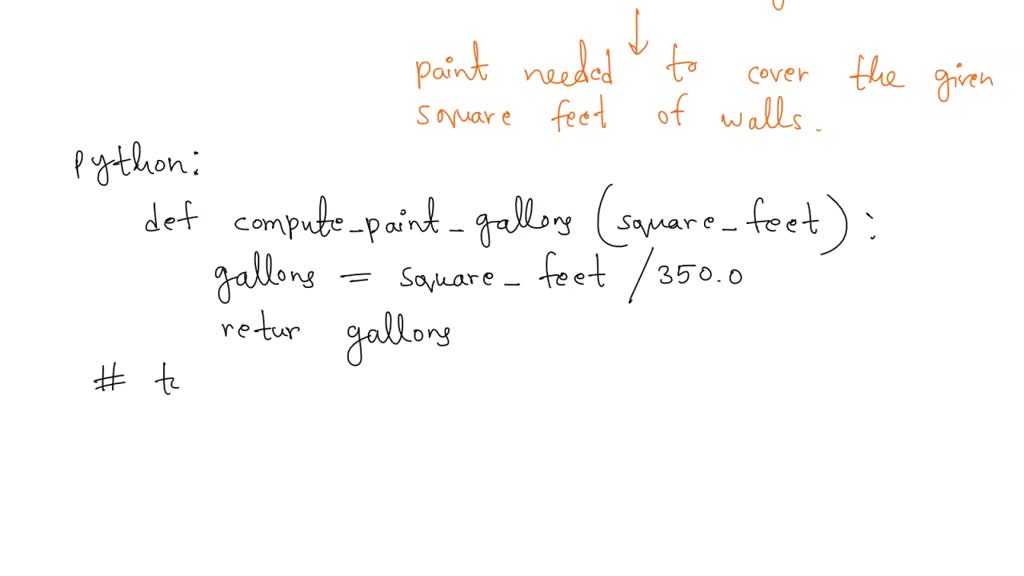 paint needed to cover the given
square feet of walls.
python:
def compute_paint_gallons (square_feet):
gallons = square_feet / 350.0
retur gallons
# t